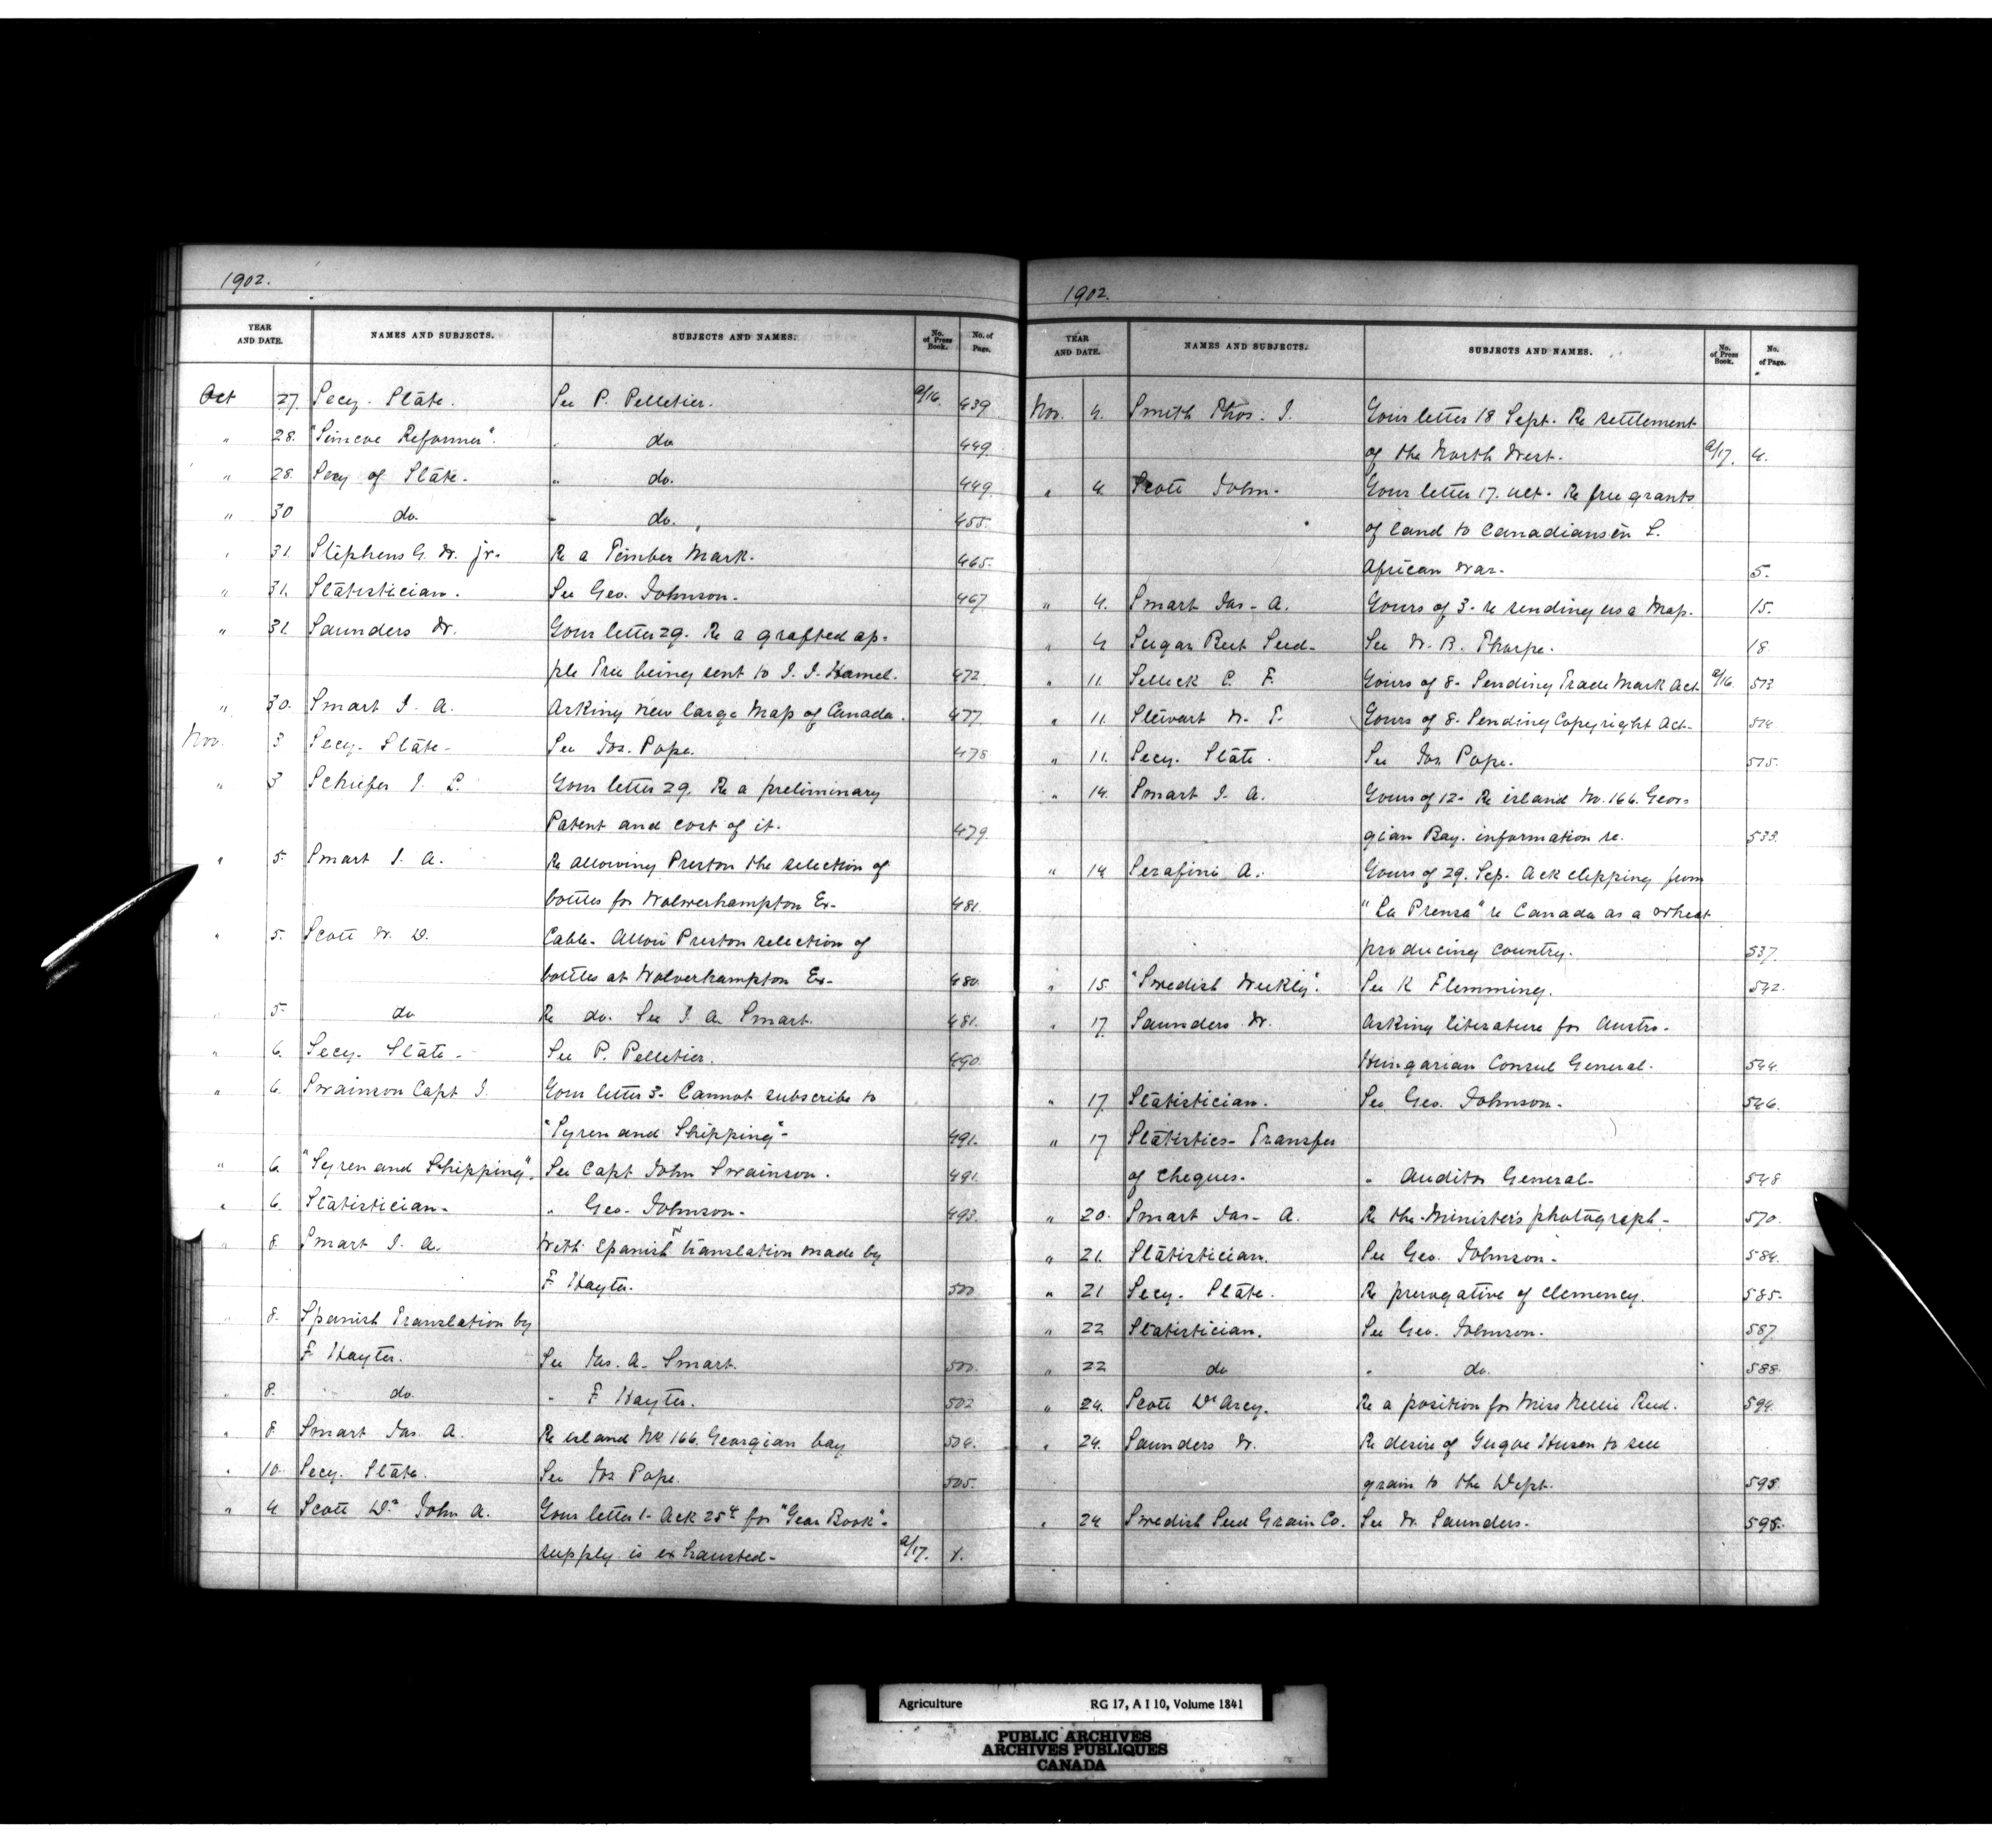 1902.
YEAR AND DATE. NAMES AND SUBJECTS. SUBJECTS AND NAMES. No. of Press Book. No. of Page.
Oct 27. Secy. State. See P. Pelletier. a/16. 439
" 28. "Simcoe Reformer". " do 449
" 28. Secy of State. " do. 449
" 30 do. " do. 455.
" 31. Stephens G. W. jr. Re a Timber Mark. 465.
" 31. Statistician. See Geo. Johnson. 467
" 31. Saunders W. Your letter 29. Re a grafted ap-
ple Tree being sent to J. J. Hamel. 472
" 30. Smart J. A. Asking new large Map of Canada. 477.
Nov. 3 Secy. State. See Jos. Pope. 478
" 3 Schiefer J. L. Your letter 29. Re a preliminary
Patent and cost of it. 479
" 5. Smart J. A. Re allowing Preston the selection of
bottles for Wolverhampton Ex- 481.
" 5. Scott W. D. Cable. Allow Preston selection of
bottles at Wolverhampton Ex- 480.
" 5. do Re do. See J. A. Smart. 481.
" 6. Secy. State. See P. Pelletier. 490.
" 6. Swainson Capt J. Your letter 3. Cannot subscribe to
"Syren and Shipping". 491.
" 6. "Syren and Shipping". See Capt John Swainson. 491.
" 6. Statistician. " Geo. Johnson. 493.
" 8. Smart J. A. With Spanish translation made by
F. Hayter. 500
" 8. Spanish Translation by
F. Hayter. See Jas. A. Smart. 500.
" 8. do. " F. Hayter. 502
" 8 Smart Jas. A. Re island No 166. Georgian bay 504.
" 10. Secy. State. See Jos Pope. 505.
" 4 Scott Dr. John A. Your letter 1. Ack 25¢ for "Year Book".
supply is exhausted. a/17.
1902.
YEAR AND DATE. NAMES AND SUBJECTS. SUBJECTS AND NAMES. No. of Press Book. No. of Page.
Nov. 4. Smith Thos. J. Your letter 18 Sept. Re settlement
of the North West. a/17. 4.
" 4. Scott John. Your letter 17. Oct. Re free grants
of land to Canadians in S.
African War. 5.
" 4. Smart Jas. A. Yours of 3. re sending us a Map. 15.
" 4 Sugar Beet Seed. See W. B. Thorpe. 18
" 11. Selleck C. F. Yours of 8. Sending Trade Mark Act. a/16 513
" 11. Stewart W. T. Yours of 8. Sending Copyright Act. 514
" 11. Secy. State. See Jos Pope. 515.
" 14. Smart J. A. Yours of 12. Re island No. 166. Geor-
gian Bay. information re. 533.
" 14 Serafini A. Yours of 29. Sep. Ack clipping from
"La Prensa" re Canada as a wheat
producing country. 537.
" 15. "Swedish Weekly". See K Flemming. 542.
" 17. Saunders W. Asking literature for Austro-
Hungarian Consul General. 544.
" 17. Statistician. See Geo. Johnson. 546.
" 17 Statistics- Transfer
of cheques. " Auditor General. 548
" 20. Smart Jas. A. Re the Minister's photograph. 570.
" 21. Statistician. See Geo. Johnson. 584.
" 21 Secy. State. Re prerogative of clemency. 585.
" 22 Statistician. See Geo. Johnson. 587
" 22 do " do. 588.
" 24. Scott D'Arcy. Re a position for Miss Nellie Reed. 594.
" 24. Saunders W. Re desire of Husen to sell
grain to the Dept. 595.
" 24 Swedish Seed Grain Co. See W. Saunders. 595.
Agriculture RG 17, A I 10, Volume 1841
PUBLIC ARCHIVES
ARCHIVES PUBLIQUES
CANADA